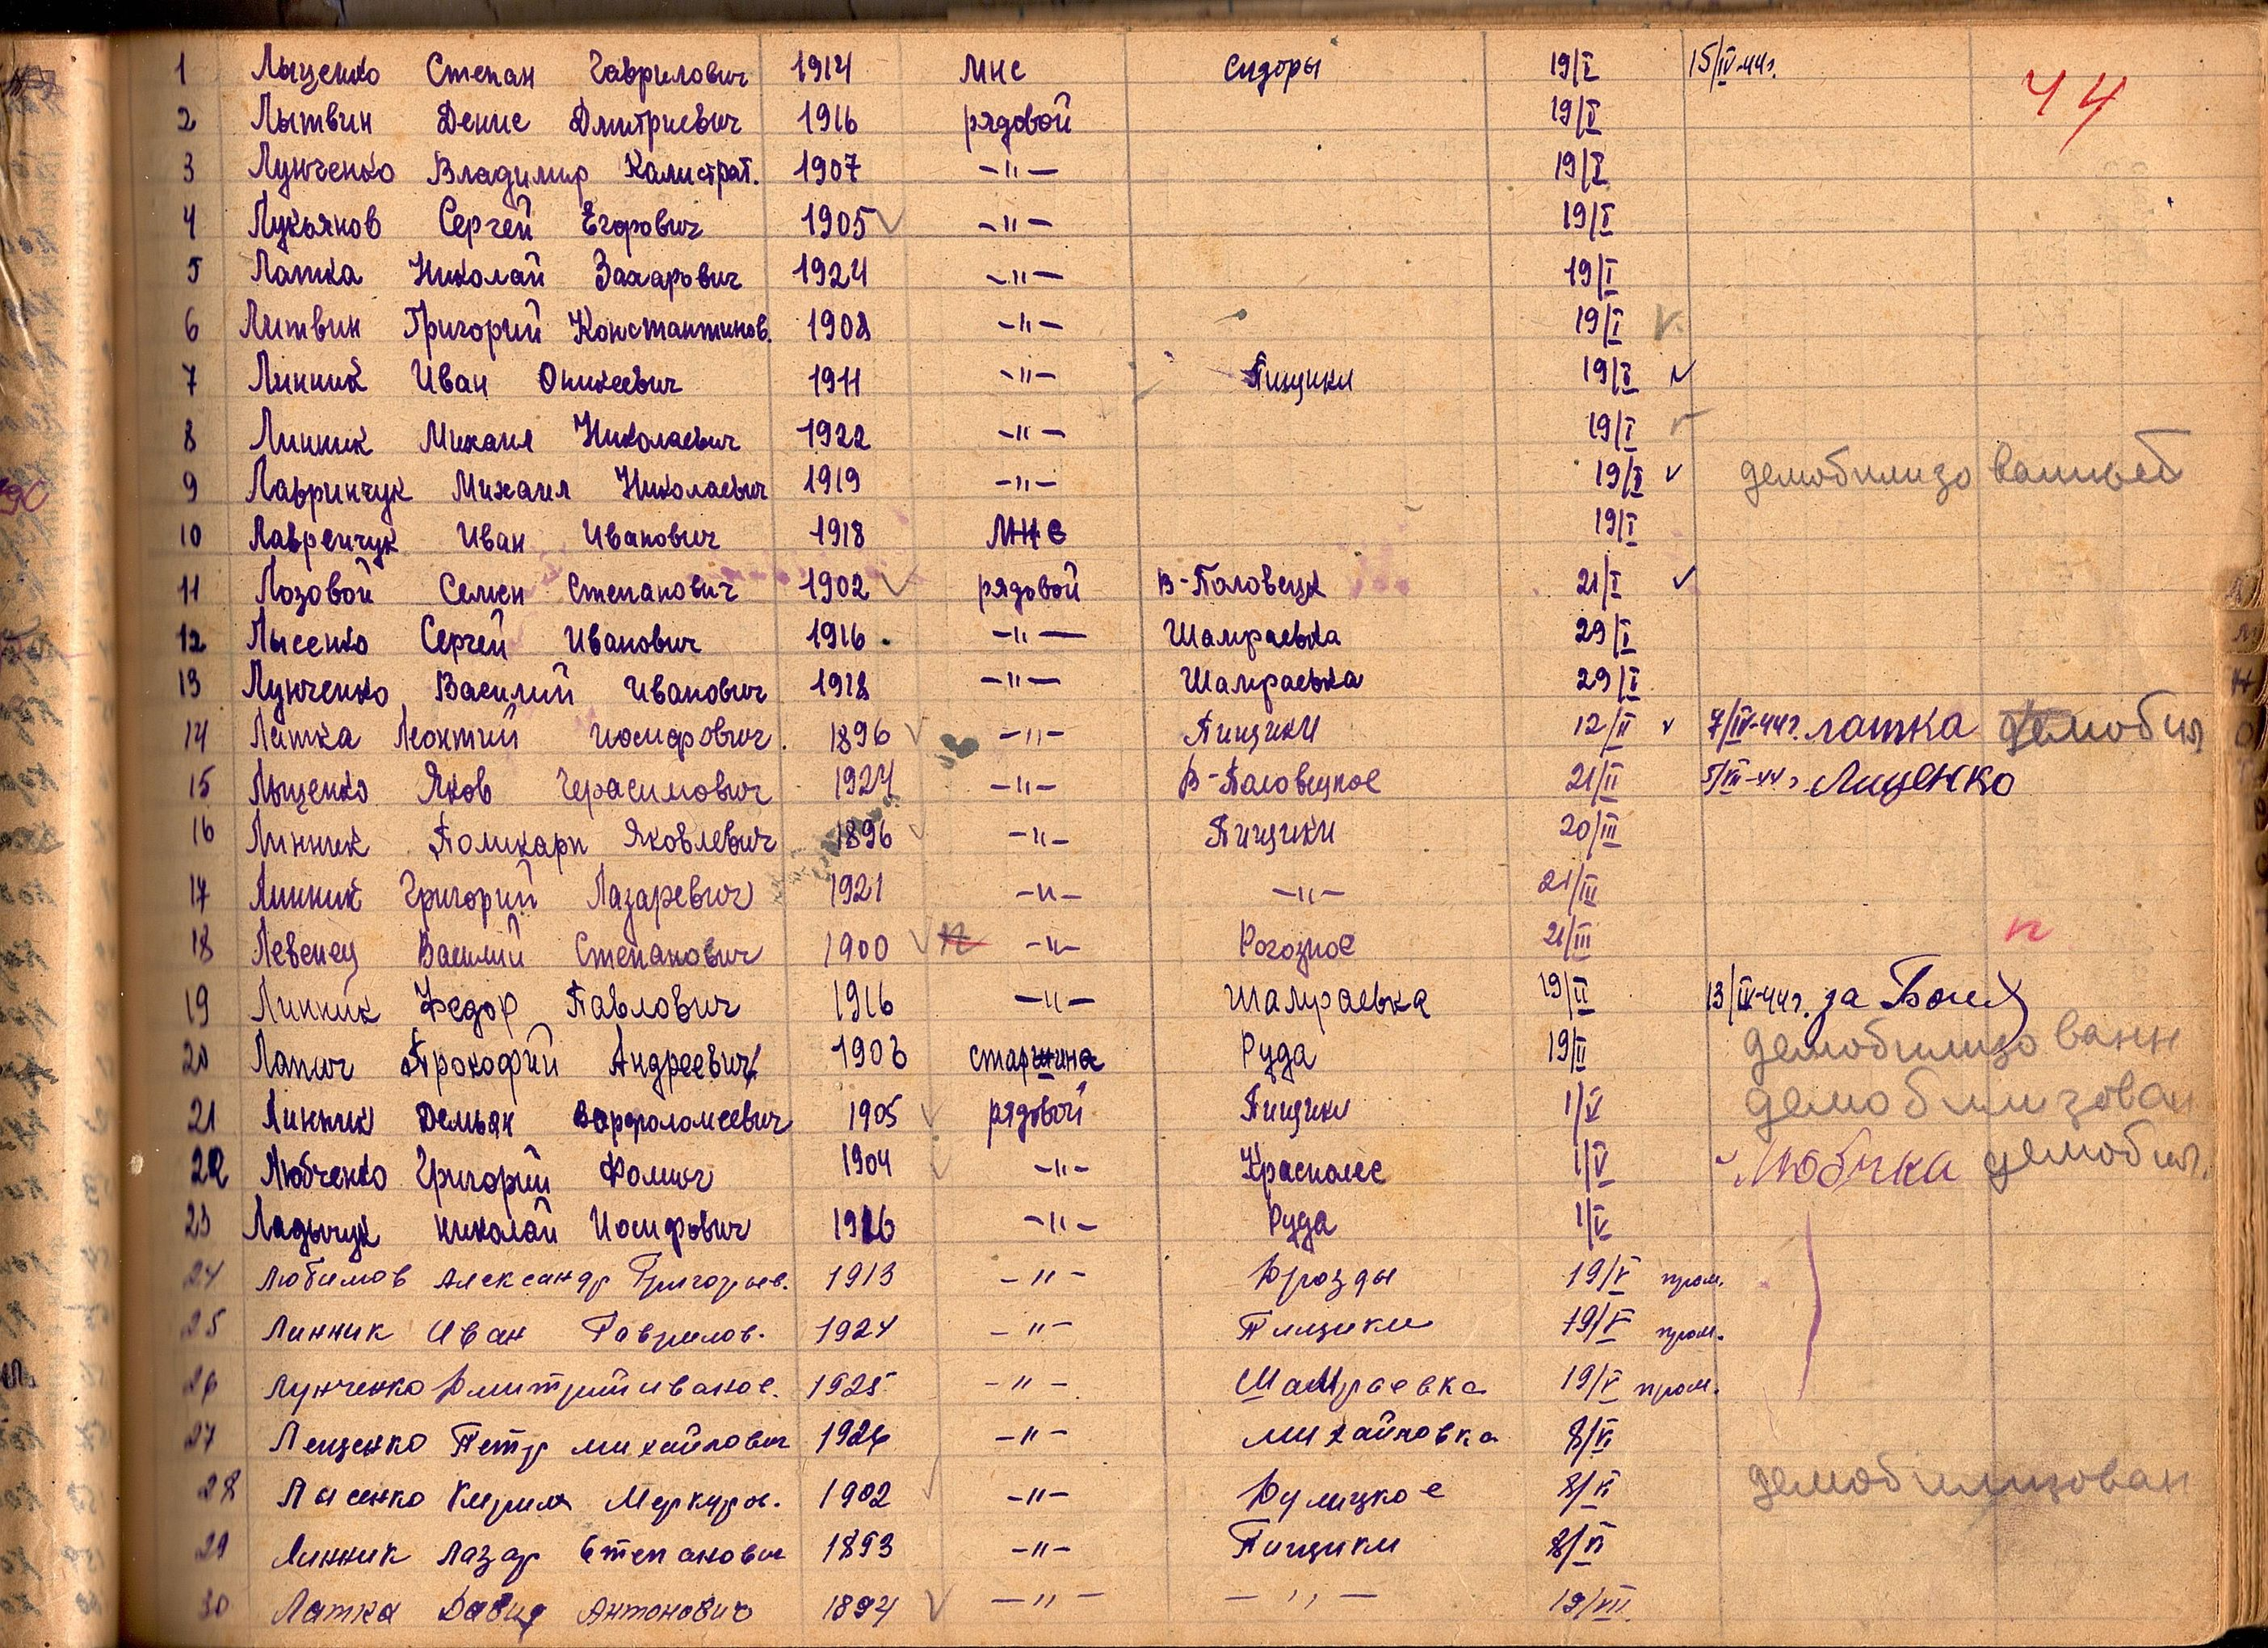 44
1 Лыценко Степан Гаврилович 1914 мнс Сидоры 19/I 15/IV-44г.
2 Лытвин Денис Дмитриевич 1916 рядовой 19/I
3 Лунченко Владимир Калистрат. 1907 -"- 19/I
4 Лукьянов Сергей Егорович 1905 -"- 19/I
5 Латка Николай Захарович 1924 -"- 19/I
6 Литвин Григорий Константинов. 1908 -"- 19/I
7 Линник Иван Оникеевич 1911 -"- Пищики 19/I
8 Линник Михаил Николаевич 1922 -"- 19/I
9 Лавринчук Михаил Николаевич 1919 -"- 19/I демобилизованный
10 Лавренчук Иван Иванович 1918 МНС 19/I
11 Лозовой Семен Степанович 1902 рядовой В-Половецк 21/I
12 Лысенко Сергей Иванович 1916 -"- Шамраевка 29/I
13 Лунченко Василий Иванович 1918 -"- Шамраевка 29/I
14 Латка Леонтий Иосифович 1896 -"- Пищики 12/II 7/IV-44г. латка демобил
15 Лыщенко Яков Герасимович 1924 -"- В-Половецкое 21/II 5/VII-44г Лищенко
16 Линник Поликарп Яковлевич 1896 -"- Пищики 20/III
17 Линник Григорий Лазаревич 1921 -"- -"- 21/III
18 Левенец Василий Степанович 1900 п -"- Рогозное 21/III п
19 Линник Федор Павлович 1916 -"- Шамраевка 19/II 13/IV-44г. за
20 Лапич Прокофий Андреевич 1906 старшина Руда 19/II демобилизованн
21 Линник Демьян Варфоломеевич 1905 рядовой Пищики 1/V демобилизован
22 Любченко Григорий Фомич 1904 -"- Краснолес 1/V Любчка демобил.
23 Ладычук Николай Иосифович 1926 -"- Руда 1/V
24 Любимов Александр Григорьев. 1913 -"- Дрозды 19/V пром.
25 Линник Иван Гаврилов. 1924 -"- Пищики 19/V пром.
26 Лунченко Дмитрий Иванов. 1925 -"- Шамраевка 19/V пром.
27 Лещенко Петр Михайлович 1926 -"- Михайловка 8/VI
28 Лысенко Кирилл Меркуров. 1902 -"- Дулицкое 8/VI демобилизован
29 Линник Лазар Степанович 1893 -"- Пищики 8/VI
30 Латка Давид Антонович 1894 -"- -"- 19/VIII